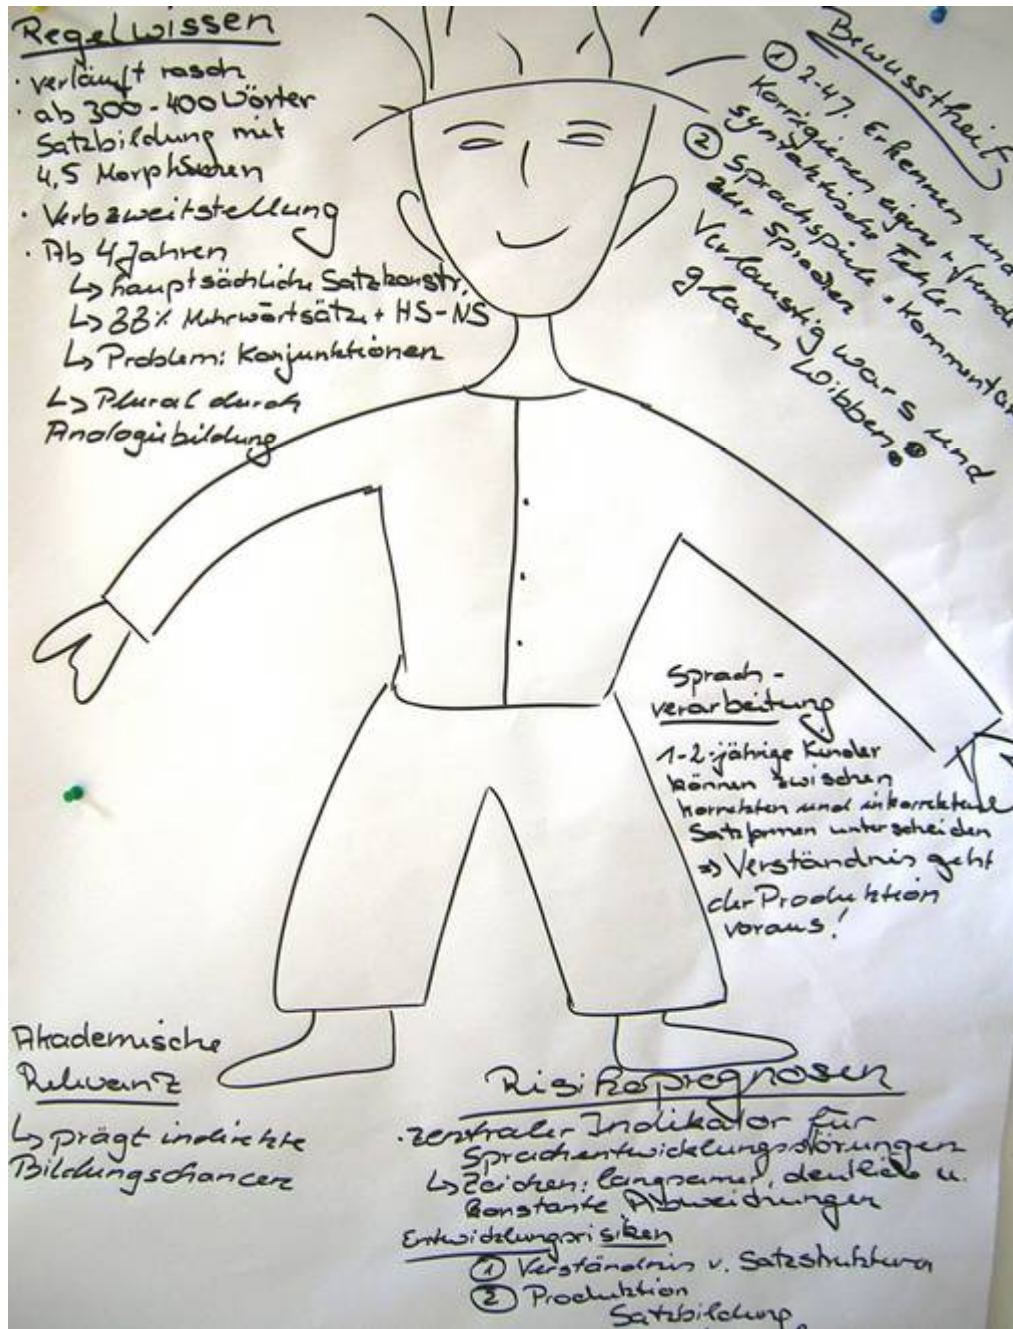 Regelwissen
· verläuft rasch
· ab 300-400 Wörter
Satzbildung mit
4,5 Morphemen
· Verbzweitstellung
· Ab 4 Jahren
↳ hauptsächliche Satzkonstr.
↳ 33% Mehrwortsätze + HS-NS
↳ Problem: Konjunktionen
↳ Plural durch
Analogiebildung
Bewusstheit
① 2-4J. Erkennen und
Korrigieren eigene + fremde
syntaktische Fehler
② Sprachspiele + Kommentare
zur Sprache
Verlaustig war's und
glasen Wibben
Sprach-
verarbeitung
1-2-jährige Kinder
können zwischen
korrekten und inkorrekten
Satzformen unterscheiden
⇒ Verständnis geht
der Produktion
voraus!
Akademische
Relevanz
↳ prägt indirekte
Bildungschancen
Risikoprognosen
· zentraler Indikator für
Sprachentwicklungsstörungen
↳ Zeichen: langsamer, deutliche u.
konstante Abweichungen
Entwicklungsrisiken
① Verständnis v. Satzstrukturen
② Produktion
Satzbildung